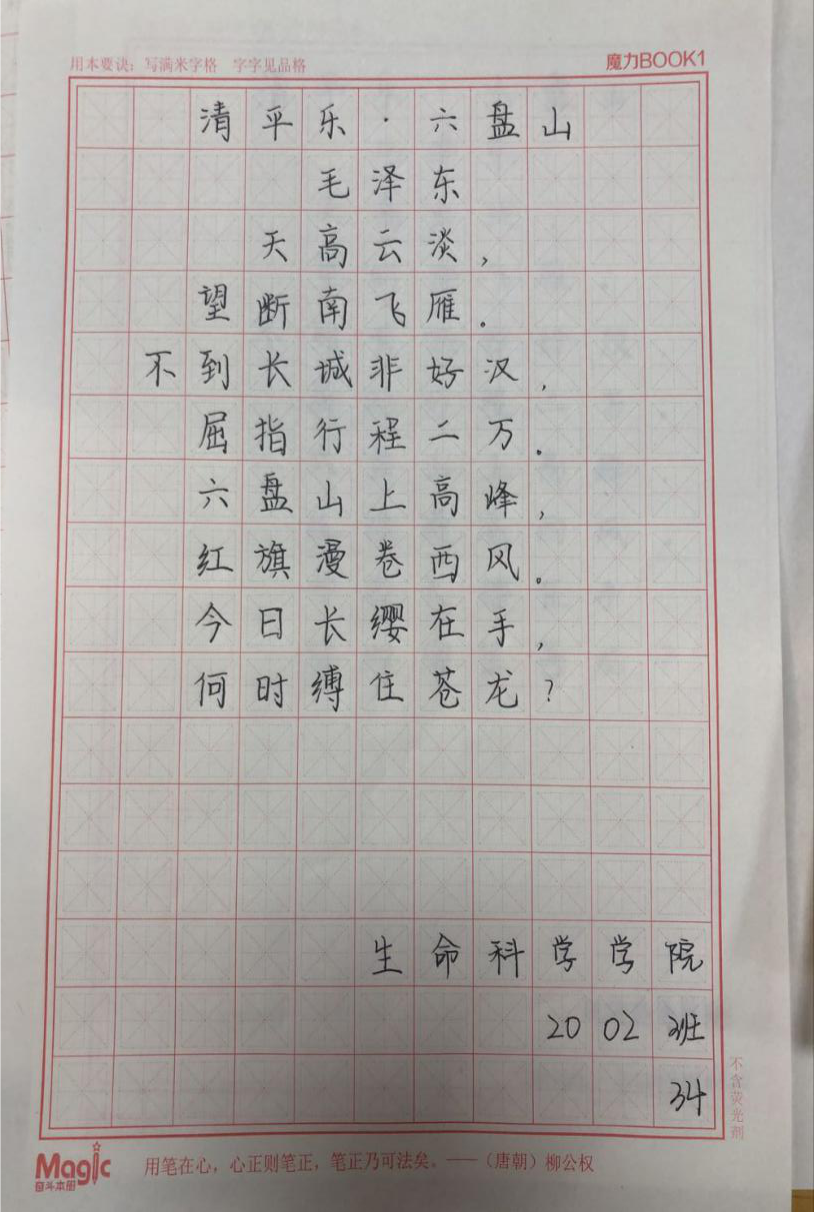 用本要诀：写满米字格 字字见品格 魔力BOOK1
清平乐·六盘山
毛泽东
天高云淡，
望断南飞雁。
不到长城非好汉，
屈指行程二万。
六盘山上高峰，
红旗漫卷西风。
今日长缨在手，
何时缚住苍龙？
生命科学学院
2002班
34
不含荧光剂
Magic
奋斗本册
用笔在心，心正则笔正，笔正乃可法矣。——（唐朝）柳公权